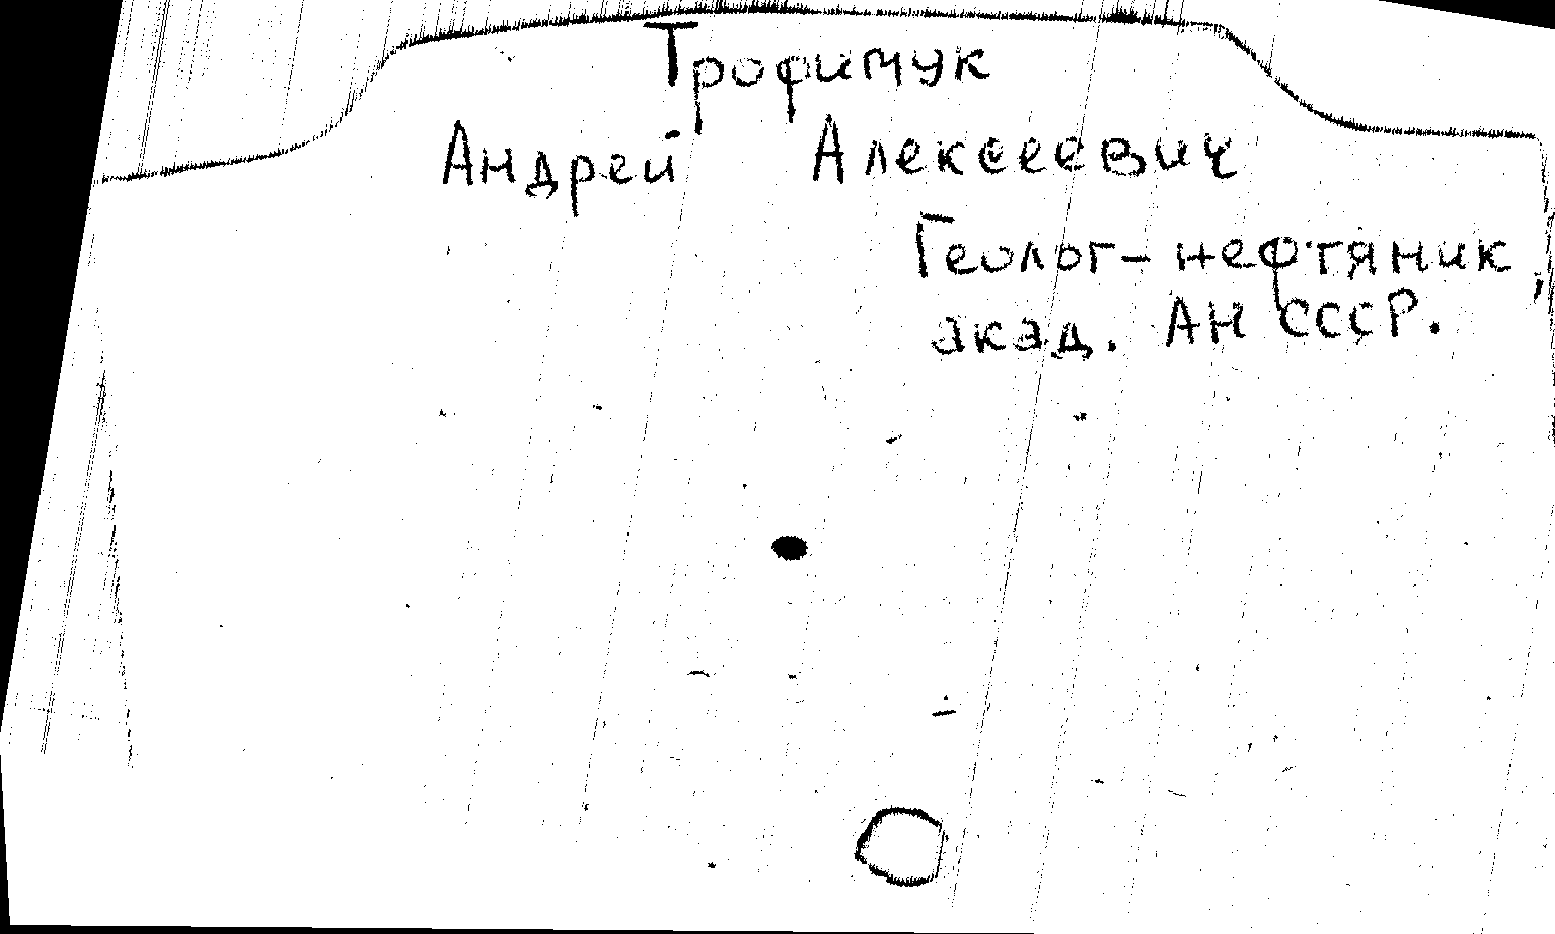 Трофимук
Андрей Алексеевич
Геолог-нефтяник,
акад. АН СССР.